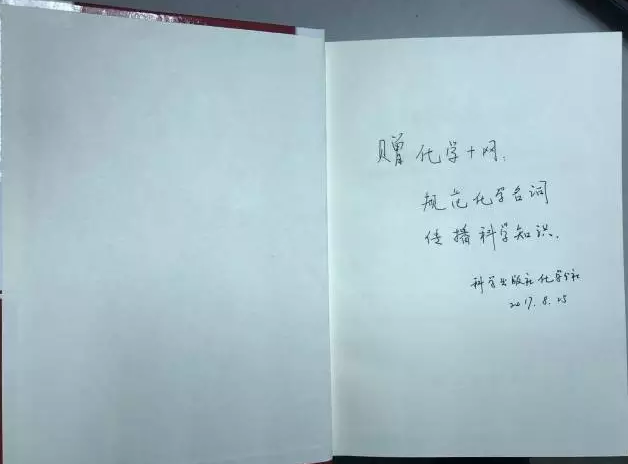 赠化学+网:
规范化学名词
传播科学知识.
科学出版社化学分社
2017.8.25